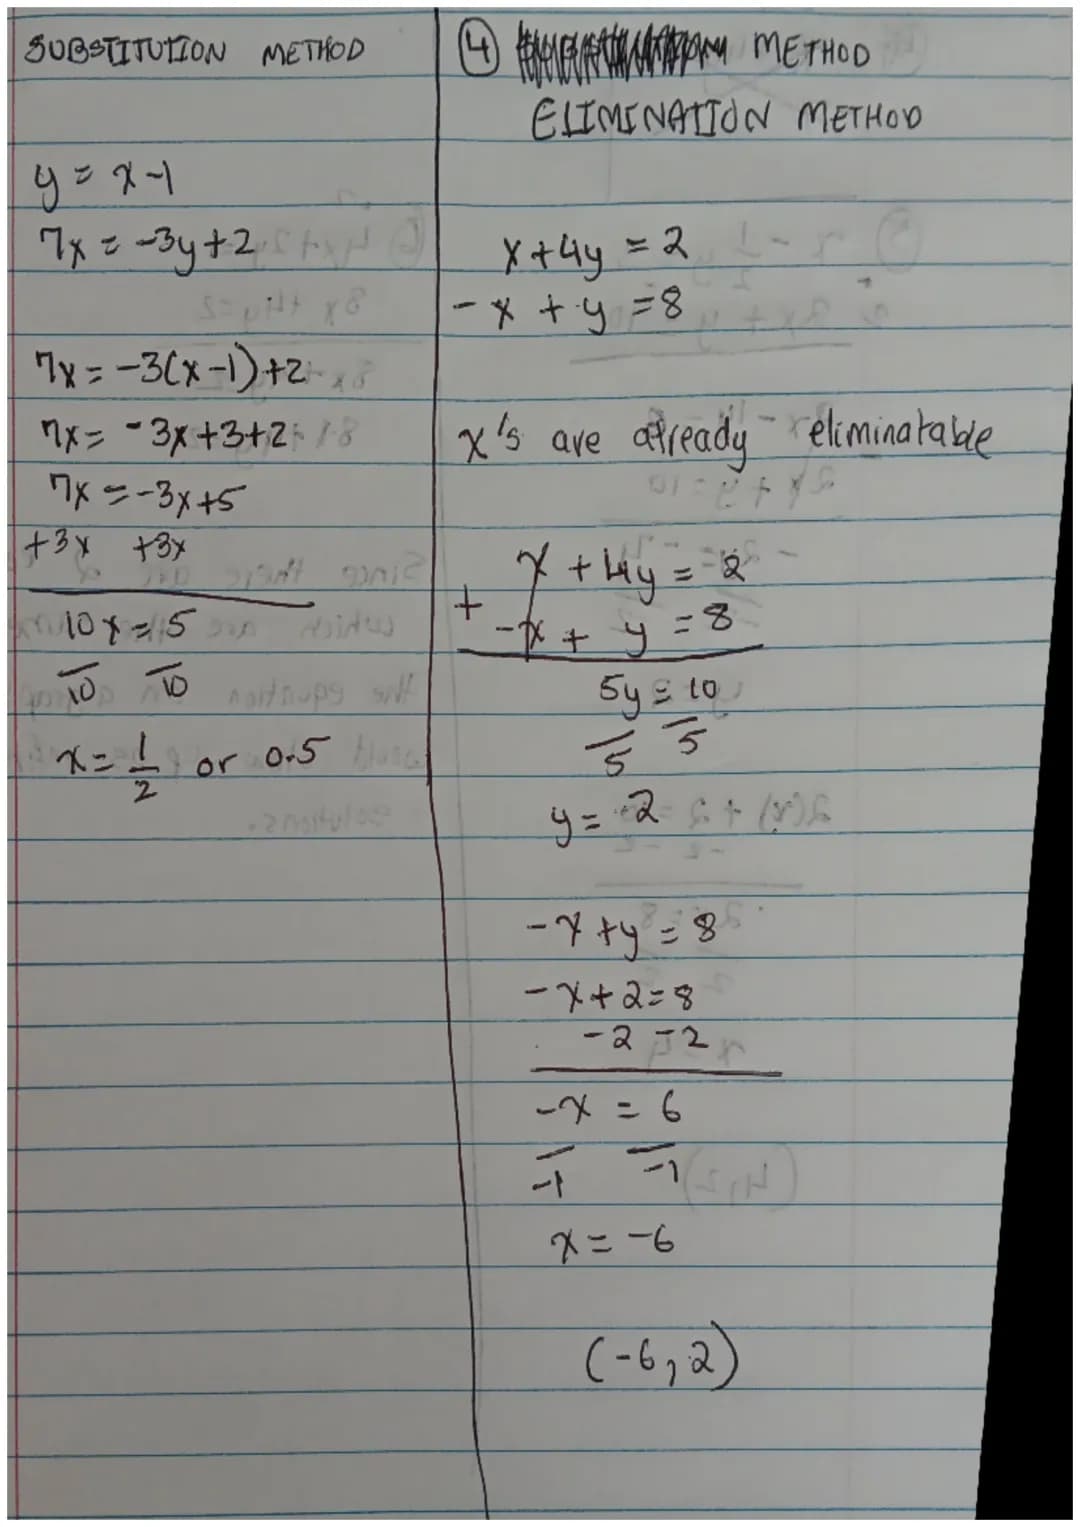 SUBSTITUTION METHOD
y = x-1
7x = -3y+2
7x = -3(x-1)+2
7x = -3x+3+2
7x = -3x+5
+3x +3x
10x = 5
10 10
x = 1/2 or 0.5
④ METHOD
ELIMINATION METHOD
x+4y = 2
-x + y = 8
x's are already eliminatable
x + 4y = 2
+ -x + y = 8
5y = 10
5 5
y = 2
-x + y = 8
-x + 2 = 8
-2 -2
-x = 6
-1 -1
x = -6
(-6, 2)